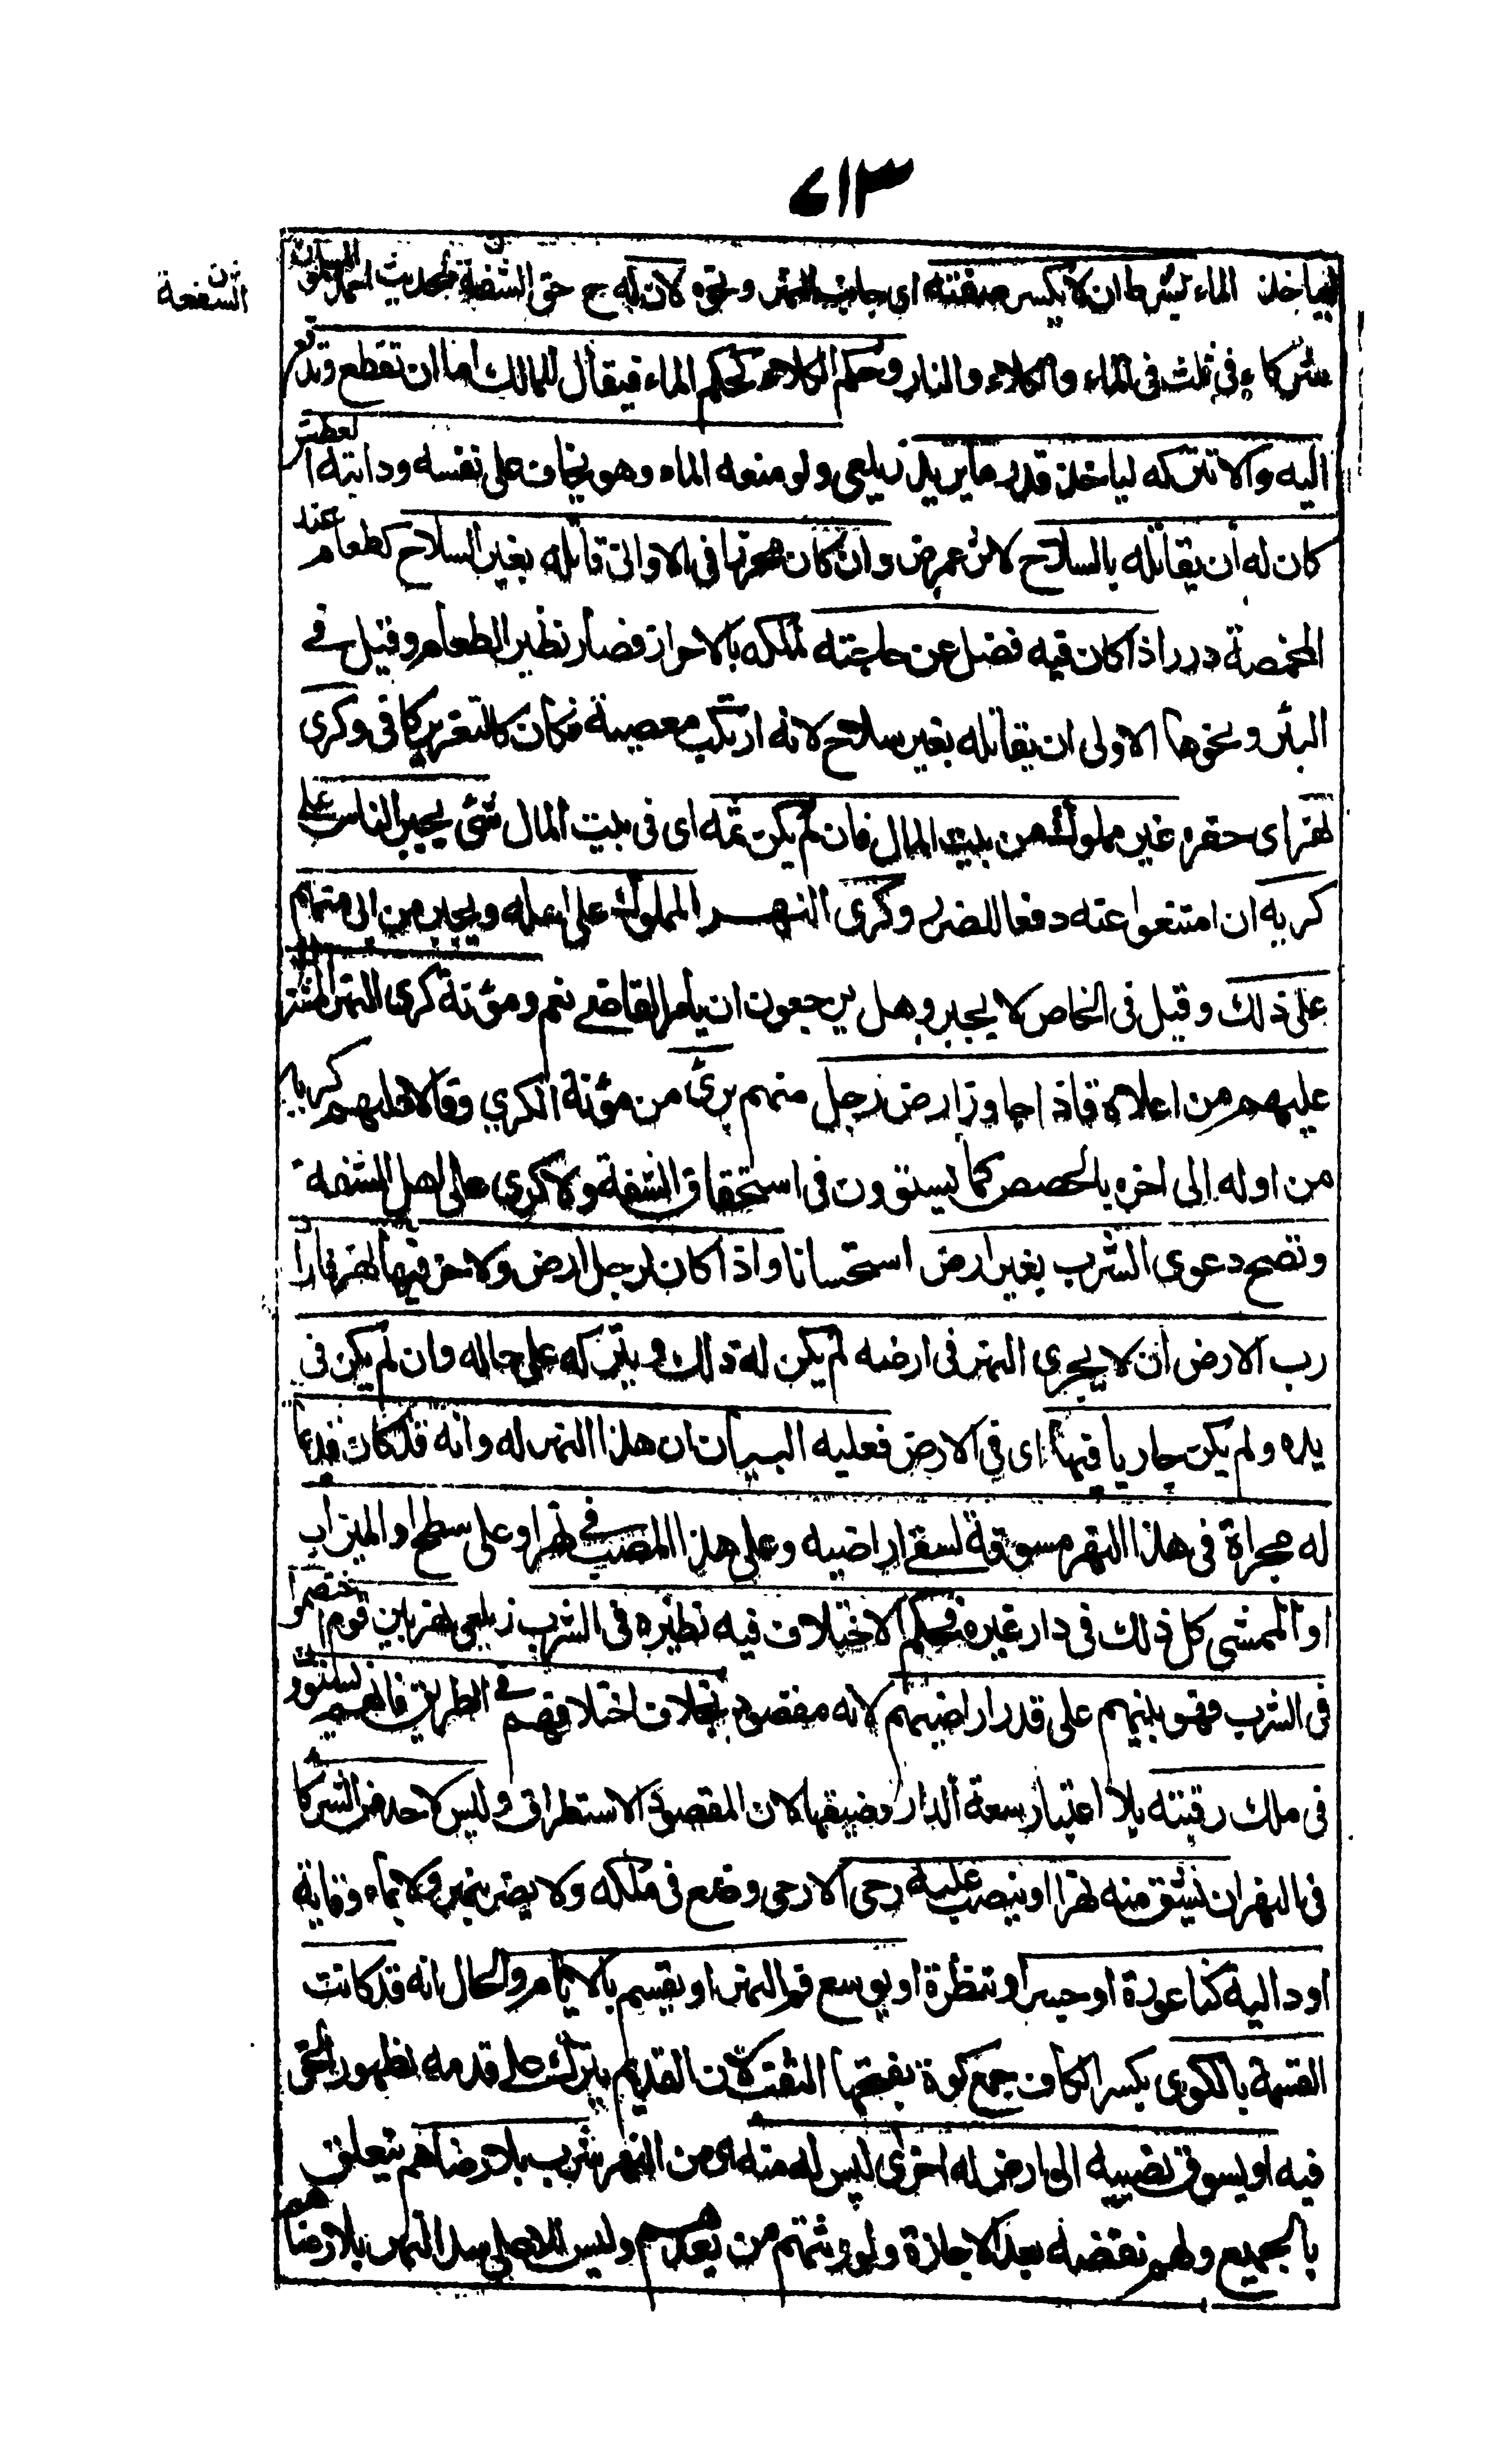 ٦١٣
ن الشفعة
لياخذ الماء بشرط ان لا يكسر ضفته اى جانب النهر ونحوه لان له ح حق الشفة لحديث احمد المسلمون
شركاء فى ثلث فى الماء والكلاء والنار وحكم الكلاء كحكم الماء فيقال للمالك اما ان تقطع وتدفع
اليه والا تتركه لياخذ قدر ما يريد زيلعى ولو منعه الماء وهو يخاف على نفسه ودابته العطش
كان له ان يقاتله بالسلاح لاثر عمر رض وان كان محرزا فى الاوانى قاتله بغير السلاح كطعام عند
المخمصة درر اذا كان فيه فضل عن حاجته لملكه بالاحراز فصار نظير الطعام وقيل فى
البئر ونحوها الاولى ان يقاتله بغير سلاح لانه ارتكب معصية فكان كالتعزير كافى وكرى
نهر اى حفره غير مملوك من بيت المال فان لم يكن ثمه اى فى بيت المال شئ يجبر الناس على
كريه ان امتنعوا عنه دفعا للضرر وكرى النهر المملوك على اهله ويجبر من ابى منهم
على ذلك وقيل فى الخاص لا يجبر وهل يرجعون ان بامر القاضى نعم ومؤنة كرى النهر المشترك
عليهم من اعلاه فاذا جاوز ارض رجل منهم برئ من مؤنة الكري وقالا عليهم كريه
من اوله الى اخره بالحصص كما يستوون فى استحقاق الشفة ولا كري على اهل الشفة
وتصح دعوى الشرب بغير ارض استحسانا واذا كان لرجل ارض ولاخر فيها نهر فاراد
رب الارض ان لا يجرى النهر فى ارضه لم يكن له ذلك ويتركه على حاله وان لم يكن فى
يده ولم يكن جاريا فيها اى فى الارض فعليه البيان ان هذا النهر له وانه قد كان
له مجراه فى هذا النهر مسوقة لسقى اراضيه وعلى هذا المصب فى نهر او على سطح او الميزاب
او الممشى كل ذلك فى دار غيره فحكم الاختلاف فيه نظيره فى الشرب زيلعى نهر بين قوم اختصموا
فى الشرب فهو بينهم على قدر اراضيهم لانه مقصود بخلاف اختلافهم فى الطريق فانهم يستوون
فى ملك رقبته بلا اعتبار سعة الدار وضيقها لان المقصود الاستطراق وليس لاحد من الشركا
فى النهر ان يشق منه نهرا او ينصب عليه رحى الا رحى وضع فى ملكه ولا يضر بنهر ولا بماء وقاية
او دالية كناعورة او جسر او قنطرة او يوسع فم النهر او يقسم بالايام والحال انه قد كانت
القسمة بالكوى بكسر الكاف جمع كوة بفتحها الثقب لان القديم يترك على قدمه لظهور الحق
فيه او يسوق نصيبه الى ارض له اخرى ليس له منه اى من النهر شرب بلا رضاهم يتعلق
بالجميع ولهم نقضه بعد الاجازة ولورثتهم من بعدهم وليس للاعلى سد النهر بلا رضاهم